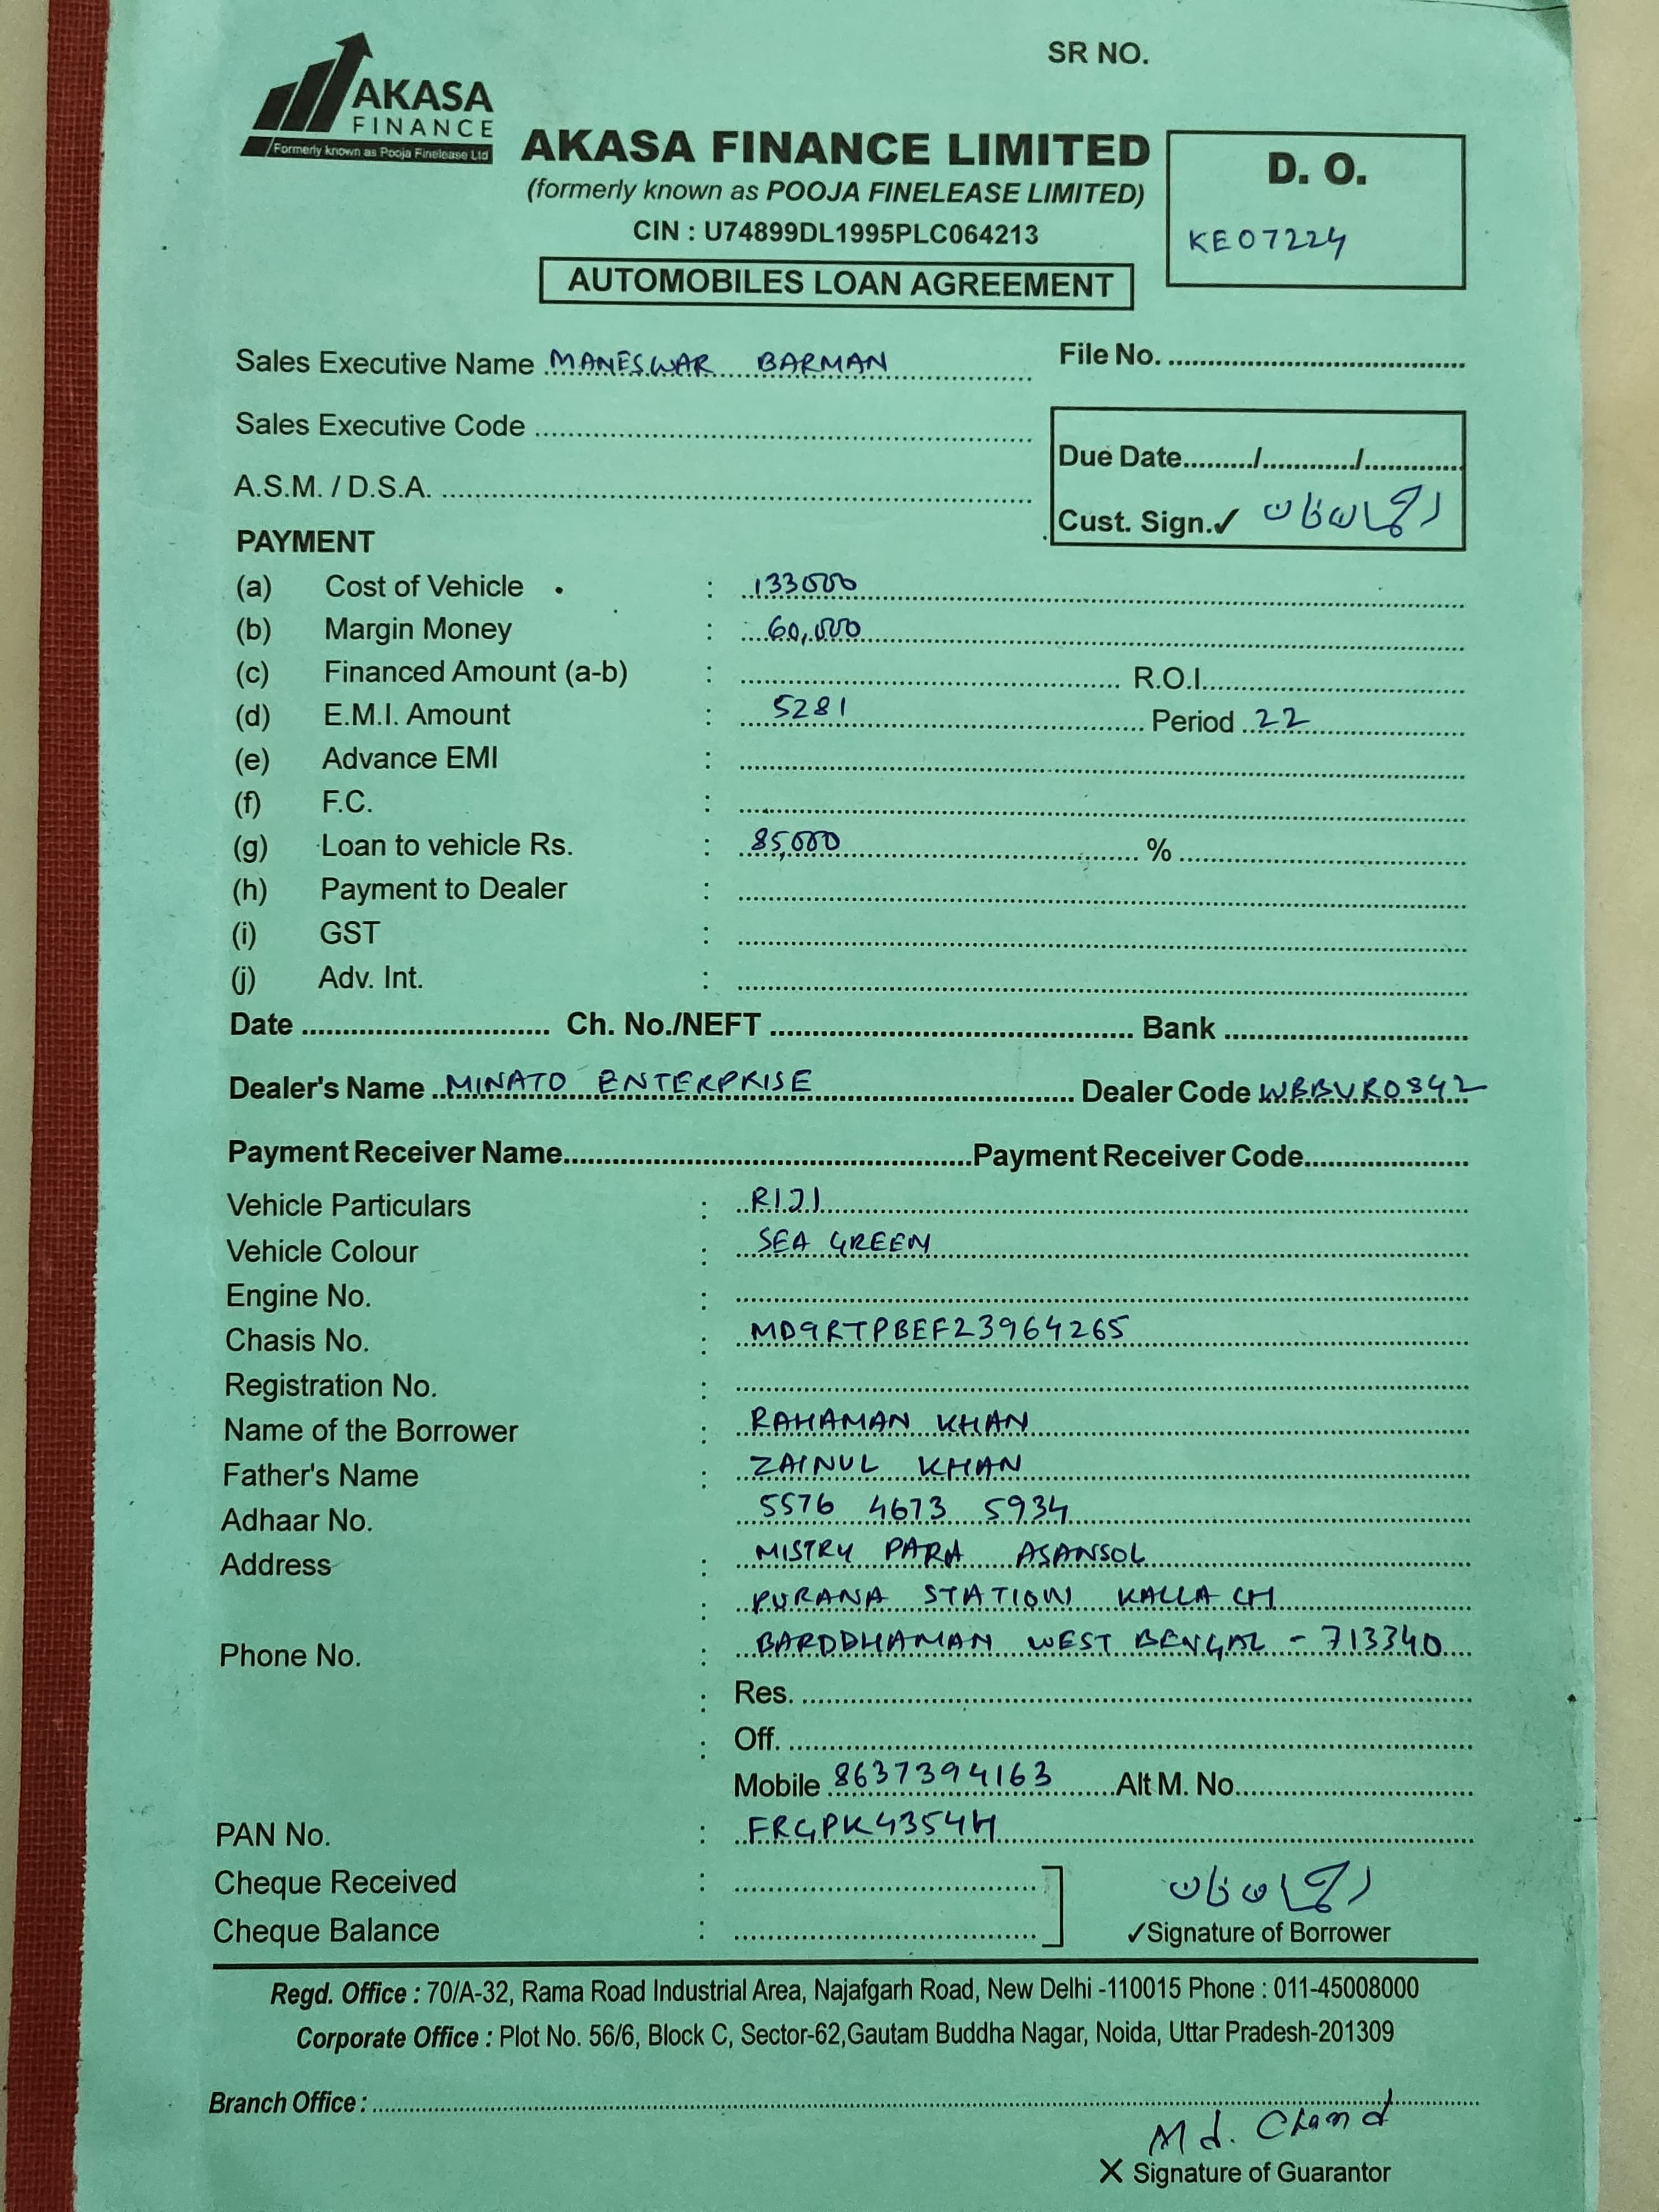 SR NO.
AKASA
FINANCE
Formerly known as Pooja Finelease Ltd
AKASA FINANCE LIMITED
(formerly known as POOJA FINELEASE LIMITED)
CIN : U74899DL1995PLC064213
D. O.
KE07224
AUTOMOBILES LOAN AGREEMENT
Sales Executive Name MANESWAR BARMAN File No.
Sales Executive Code
Due Date / /
A.S.M. / D.S.A.
Cust. Sign.✓
PAYMENT
(a) Cost of Vehicle : 133000
(b) Margin Money : 60,000
(c) Financed Amount (a-b) : R.O.I.
(d) E.M.I. Amount : 5281 Period 22
(e) Advance EMI :
(f) F.C. :
(g) Loan to vehicle Rs. : 85,000 %
(h) Payment to Dealer :
(i) GST :
(j) Adv. Int. :
Date Ch. No./NEFT Bank
Dealer's Name MINATO ENTERPRISE Dealer Code WBBVR0842
Payment Receiver Name Payment Receiver Code
Vehicle Particulars : RIJI
Vehicle Colour : SEA GREEN
Engine No. :
Chasis No. : MD9RTPBEF23964265
Registration No. :
Name of the Borrower : RAHAMAN KHAN
Father's Name : ZAINUL KHAN
Adhaar No. 5576 4673 5934
Address : MISTRY PARA ASANSOL
: PURANA STATION KALLA CH
Phone No. : BARDDHAMAN WEST BENGAL - 713340
: Res.
: Off.
Mobile 8637394163 Alt M. No.
PAN No. : FRGPK4354H
Cheque Received :
Cheque Balance :
✓Signature of Borrower
Regd. Office : 70/A-32, Rama Road Industrial Area, Najafgarh Road, New Delhi -110015 Phone : 011-45008000
Corporate Office : Plot No. 56/6, Block C, Sector-62,Gautam Buddha Nagar, Noida, Uttar Pradesh-201309
Branch Office :
Md. Chand
X Signature of Guarantor